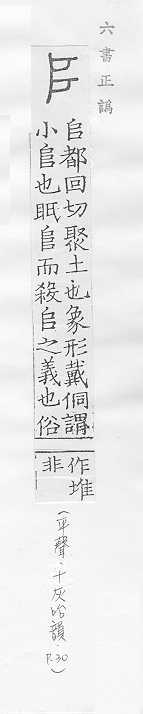 六書正譌
𠂤都回切聚土也象形戴侗謂
小𨸏也眂𨸏而殺𠂤之義也俗
作堆
非
(平聲·十灰咍韻·P.30)